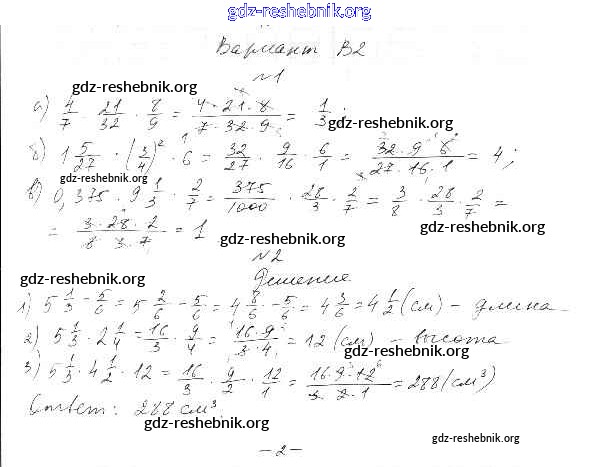 gdz-reshebnik.org
Вариант В2
№1
gdz-reshebnik.org
а) 4/7 · 21/32 · 8/9 = 4·21·8/7·32·9 = 1/3;
gdz-reshebnik.org
б) 1 5/27 · (3/4)² · 6 = 32/27 · 9/16 · 6/1 = 32·9·6/27·16·1 = 4;
gdz-reshebnik.org
в) 0,375 · 9 1/3 · 2/7 = 375/1000 · 28/3 · 2/7 = 3/8 · 28/3 · 2/7 =
= 3·28·2/8·3·7 = 1
gdz-reshebnik.org
gdz-reshebnik.org
№2
gdz-reshebnik.org
Решение
1) 5 1/3 - 5/6 = 5 2/6 - 5/6 = 4 8/6 - 5/6 = 4 3/6 = 4 1/2 (см) - длина
2) 5 1/3 · 2 1/4 = 16/3 · 9/4 = 16·9/3·4 = 12 (см) - высота
gdz-reshebnik.org
3) 5 1/3 · 4 1/2 · 12 = 16/3 · 9/2 · 12/1 = 16·9·12/3·2·1 = 288 (см³)
Ответ: 288 см³.
gdz-reshebnik.org
gdz-reshebnik.org
- 2 -